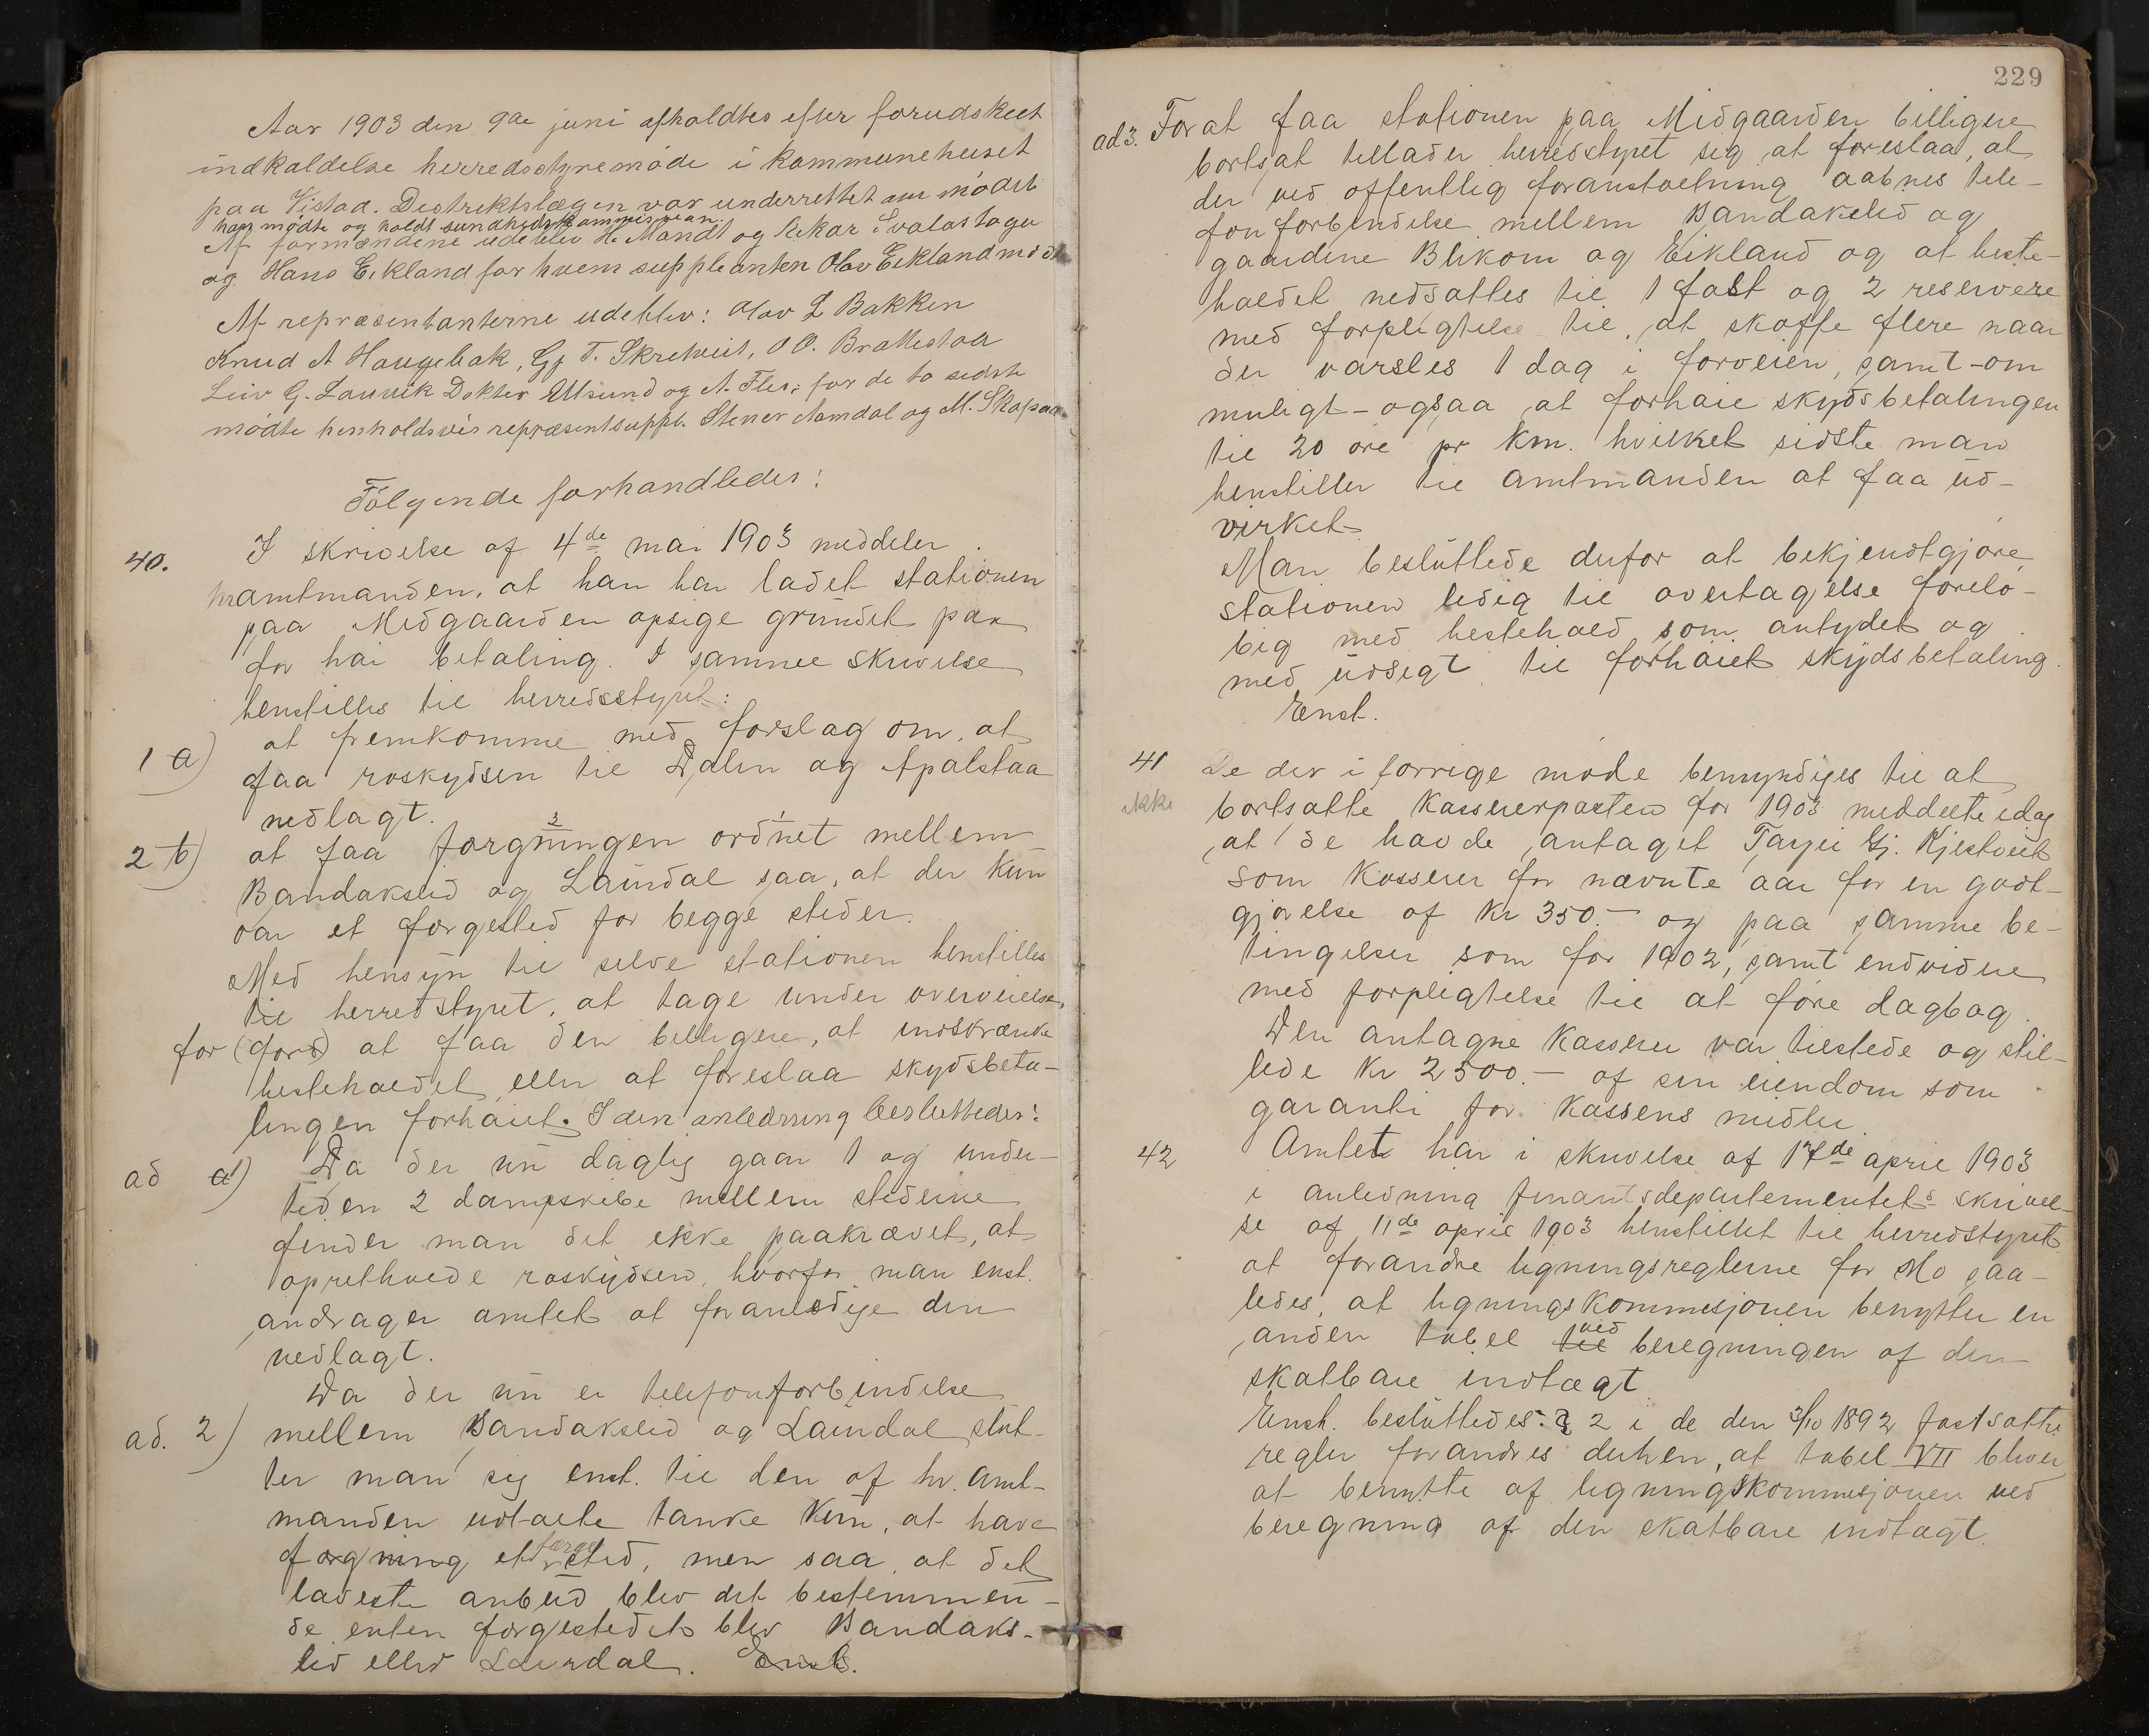 Aar 1903 den 9de juni afholdtes efter forudskeet
indkaldelse herredsstyremøde i kommunehuset
paa Vistad. Distriktslægen var underrettet om mødet
han mødte og holdt sundhedskommission.
Af formændene udeblev H. Mandt og Svalastoga
og Hans Eikland for hvem suppleanten Olav Eikland mødte
Af repræsentanterne udeblev: Olav L Bakken
Knud A Haugebak, Gj T. Skretveit, O O. Brattestaa
Leiv G. Lauvik Dokter Ulsund og A. Fles; for de to sidste
mødte henholdsvis repræsentsuppl. Stener Aamdal og M. Skapaa
Følgende forhandledes:
40. I skrivelse af 4de mai 1903 meddeler
hr amtmanden, at han har ladet stationen
paa Midgaarden opsige grundet paa
for høi betaling. I samme skrivelse
henstilles til herredsstyret:
1 a) at fremkomme med forslag om, at
faa roskydsen til Dalen og Apalstaa
nedlagt.
2 b) at faa færgningen ordnet mellem
Bandakslid og Laurdal saa, at der kun
var et færgested for begge steder.
3
Med hensyn til selve stationen henstilles
til herredstyret, at tage under overveielse,
for (ford) at faa den billigere, at indskrænke
hesteholdet, eller at foreslaa skydsbeta-
lingen forhøiet. I den anledning besluttedes:
ad a1) Da der nu daglig gaar 1 og under-
tiden 2 dampskibe mellem stederne
finder man det ikke paakrævet, at
opretholde roskydsen, hvorfor man enst.
andrager amtet at foranledige den
nedlagt.
Da der nu er telefonforbindelse
ad. 2) mellem Bandakslid og Laurdal slut-
ter man sig enst. til den af hr. amt-
manden udtalte tanke kun, at have
færgning et færgested, men saa at det
laveste anbud blev det bestemmen-
de enten færgestedet blev Bandaks-
lid eller Laurdal. Enst.
229
ad 3. For at faa stationen paa Midgaarden billigere
bortsat tillader herredstyret sig at foreslaa, at
der ved offentlig foranstaltning aabnes tele-
fonforbindelse mellem Bandakslid og
gaardene Blikom og Eikland og at heste-
holdet nedsættes til 1 fast og 2 reservere
med forpligtelse til, at skaffe flere naar
der varsles 1 dag i forveien, samt - om
muligt - ogsaa at forhøie skydsbetalingen
til 20 øre pr km. hvilket sidste man
henstiller til amtmanden at faa ud-
virket.
Man besluttede derfor at bekjendtgjøre
stationen ledig til overtagelse forelø-
big med hestehold som antydet og
med udsigt til forhøiet skydsbetaling.
Enst.
41 De der i forrige møde bemyndiges til at
ikke bortsætte kassererposten for 1903 meddelte idag
at de havde antaget Tarjei Gj. Kjestveit
som kasserer for nævnte aar for en godt-
gjørelse af kr 350.- og paa samme be-
tingelser som for 1902, samt endvidere
med forpligtelse til at føre dagbog.
Den antagne kasserer var tilstede og stil-
lede kr 2500.- af sin eiendom som
garanti for kassens midler.
42 Amtet har i skrivelse af 17de april 1903
i anledning finantsdepartementets skrivel-
se af 11de april 1903 henstillet til herredstyret
at forandre ligningsreglerne for Mo saa-
ledes, at ligningskommisjonen benytter en
anden tabel til ved beregningen af den
skatbare indtægt.
Enst. besluttedes: § 2 i de den 3/10 1892 fastsatte
regler forandres derhen, at tabel VII bliver
at benytte af ligningskommisjonen ved
beregning af den skatbare indtægt.